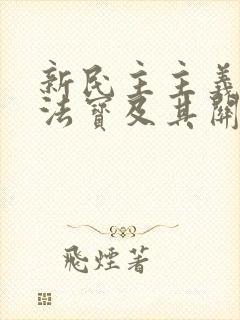 新民主主義
法寶及其關
飛煙著